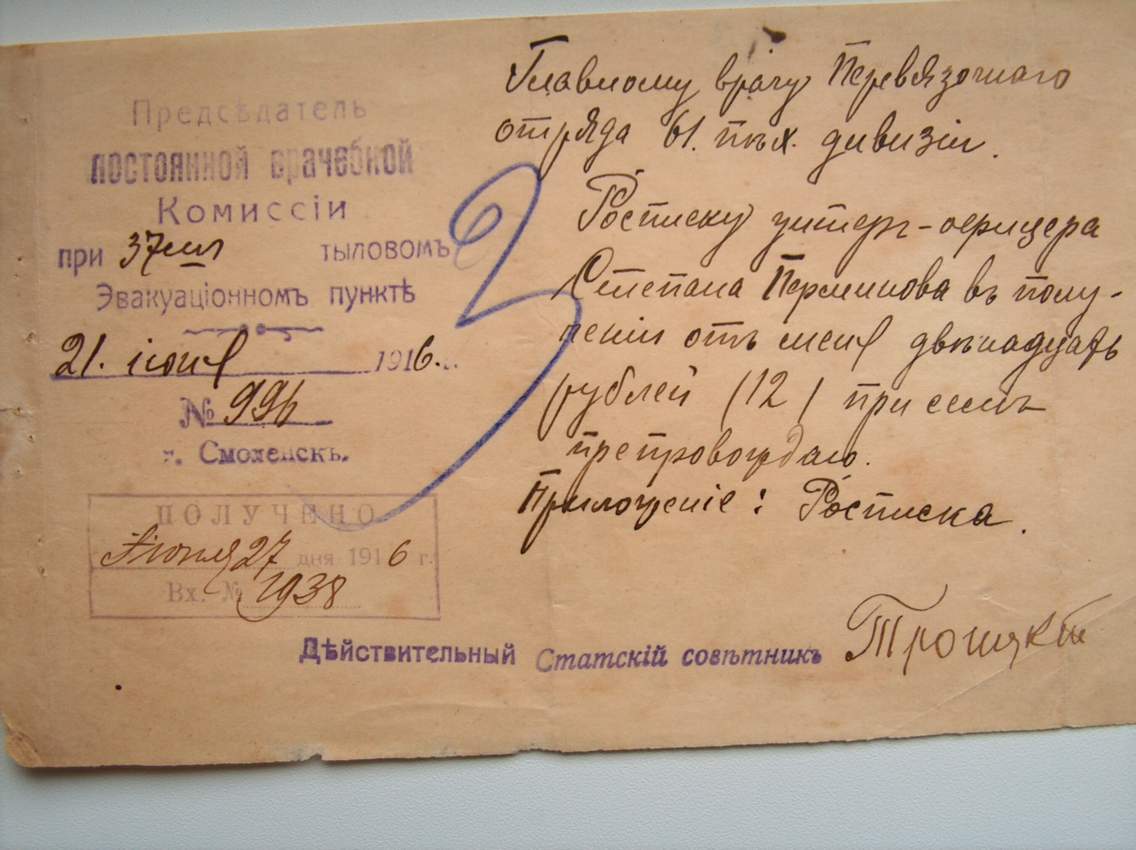 Предсѣдатель
постоянной врачебной
Комиссіи
при 37мъ тыловомъ
Эвакуаціонномъ пунктѣ
21. іюня 1916.
№ 996
г. Смоленскъ.
ПОЛУЧЕНО
Іюня 27 дня 1916 г.
Вх. № 1938
Главному врачу Перевязочнаго
отряда 61. пѣх. дивизіи.
Росписку унтеръ-офицера
Степана Перминова въ полу-
ченіи отъ меня двѣнадцать
рублей (12) при семъ
препровождаю.
Приложеніе: Росписка.
Дѣйствительный Статскій совѣтникъ Троицкій